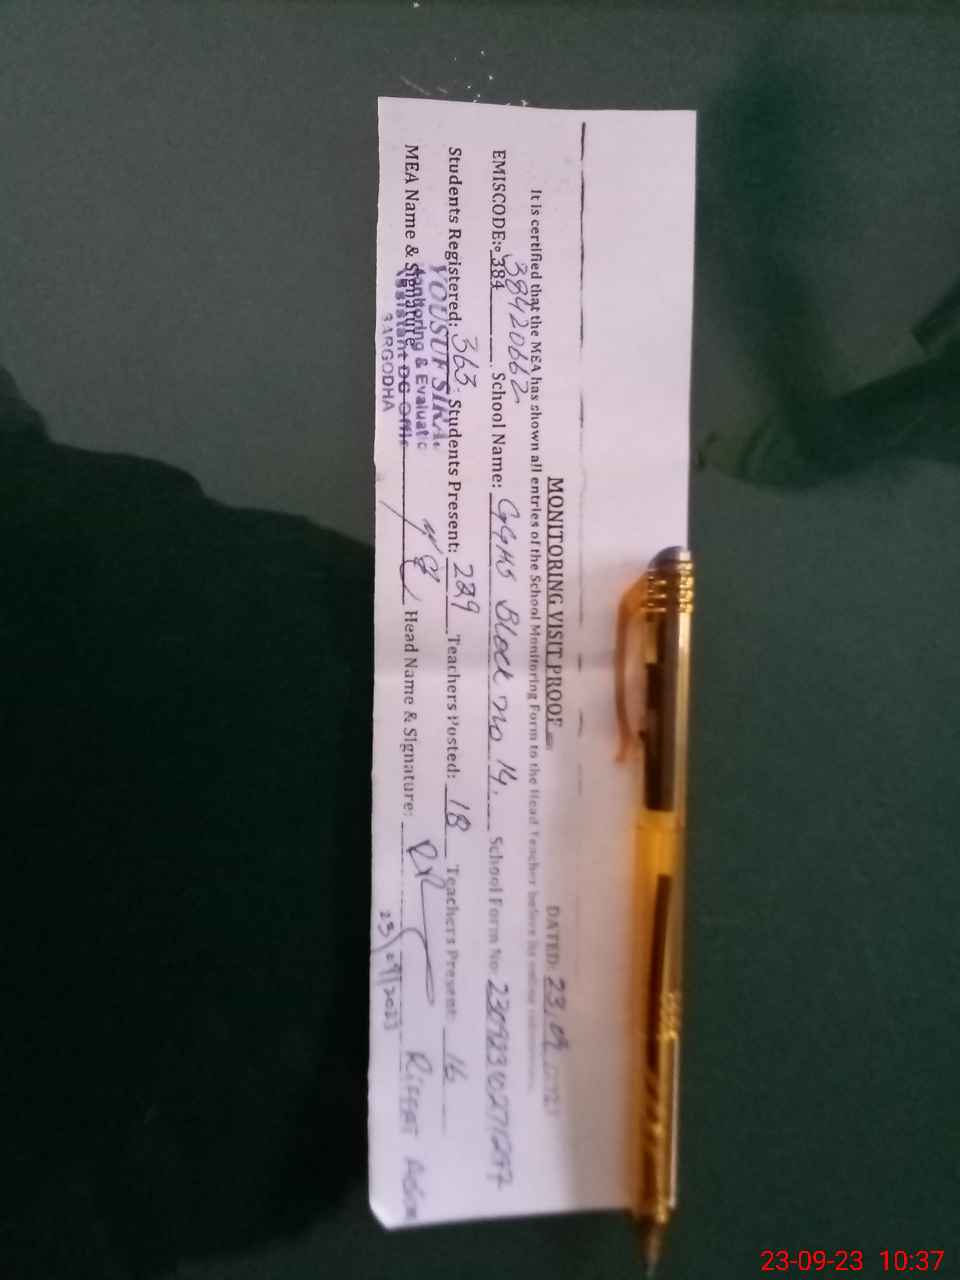 MONITORING VISIT PROOF
DATED: 23, 09
It is certified that the MEA has shown all entries of the School Monitoring Form to the Head Teacher before its online
38420662
EMISCODE: 384 School Name: GGHS Block no 14. School Form No:
Students Registered: 363. Students Present: 289 Teachers Posted: 18 Teachers Present: 16
YOUSUF
MEA Name & Signature Head Name & Signature: RIFFAT
Monitoring & Evaluatio
Assistant DC Offic
SARGODHA
23/09/2023
23-09-23 10:37